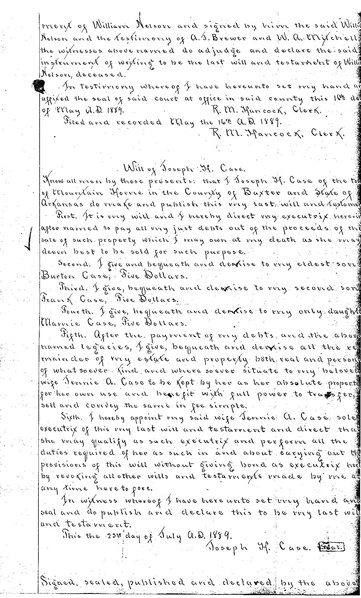 ment of William Nelson and signed by him the said Willi
Nelson and the testimony of A.S. Brewer and W.A. Mitchell
the witnesses above named do adjudge and declare the said
instrument of writing to be the last will and testament of Will
Nelson, deceased.
In testimony whereof I have hereunto set my hand a
affixed the seal of said court at office in said county this 16th da
of May A.D. 1889. R.M. Hancock, Clerk.
Filed and recorded May the 16th A.D. 1889.
R.M. Hancock, Clerk.
Will of Joseph H. Case.
Know all men by these presents: that I Joseph H. Case of the to
of Mountain Home in the County of Baxter and State of
Arkansas do make and publish this my last will and
First. It is my will and I hereby direct my executrix herein
after named to pay all my just debts out of the proceeds of the
sale of such property which I may own at my death as she may
deem best to be sold for such purpose.
Second. I give and bequeath and devise to my eldest son
Burton Case, Five Dollars.
Third. I give, bequeath and devise to my second son
Frank Case, Five Dollars.
Fourth. I give, bequeath and devise to my only daught
Mamie Case, Five Dollars.
Fifth. After the payment of my debts, and the abov
named legacies, I give, bequeath and devise all the re
mainder of my estate and property both real and person
of whatsoever kind and where soever situate to my belove
wife Jennie A. Case to be kept by her as her absolute propert
for her own use and benefit with full power to transfer,
sell and convey the same in fee simple.
Sixth. I hereby appoint my said wife Jennie A. Case sole
executrix of this my last will and testament and direct tha
she may qualify as such executrix and perform all the
duties required of her as such in and about carying out th
provisions of this will without giving bond as executrix he
by revoking all other wills and testaments made by me a
any time heretofore.
In witness whereof I have hereunto set my hand an
seal and do publish and declare this to be my last wil
and testament.
This the 22nd day of July A.D. 1889.
Joseph H. Case. Seal.
Signed, sealed, published and declared by the above